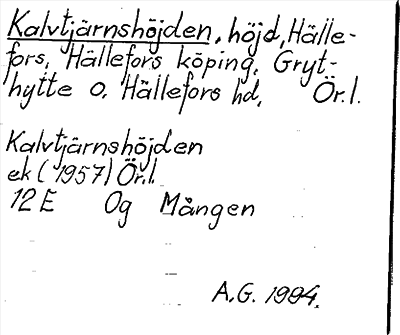 Kalvtjärnshöjden, höjd, Hälle-
fors, Hällefors köping, Gryt-
hytte o. Hällefors hd, Ör.l.
Kalvtjärnshöjden
ek (1957) Ör.l.
12 E Og Mången
A.G. 1994.